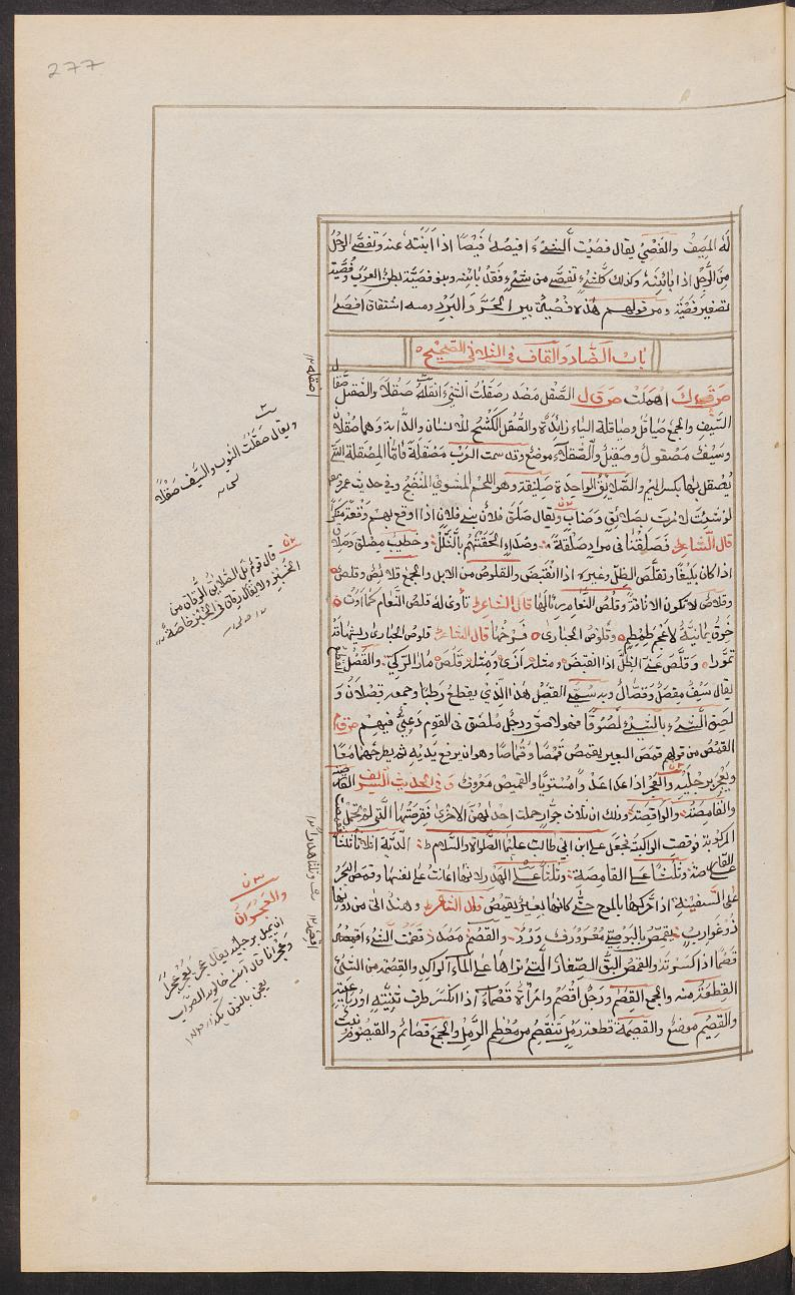 277
له المصفّ والفَصْيُ يقال فصيت الشيء افيصه فَيْصًا اذا ابنته عنه وتفصّى الرجل
من الرجل اذا باينه وكذلك كل شيء تفصّى من شيء فقد باينه وبنو فصيّة بطن من العرب فُصَيّة
تصغير فَصْيَة ومن قولهم هذه فُصْيةٌ بين الحَرّ والبَرْد ومنه اشتقاق افصى
باب الصّاد والقاف في الثلاثي الصحيح
ص ق ك اهملت ص ق ل الصَّقْل مصدر صقلت الشيء اصقله صَقْلًا والصَّيقل صقّال
السّيف والجمع صَيَاقل وصياقلة الياء زائدة والصُّقْل الكَشْح للانسان والدابة وهما صُقْلان
وسَيْفٌ مَصْقُول وصَقِيل والصَّقْلاء موضع وقد سمت العرب مَصْقَلَة فامّا المِصْقَلة التي
يُصقل بها بكسر الميم والصَّلائق الواحدة صَلِيقَة وهو اللحم المشوي المنضج وفي حديث عمر
لو شئت لامرت بصلائق وصِنَاب ويقال صَلَقَ فلان بني فلان اذا اوقع بهم وقعة منكرة
قال الشاعر فصَلَقْنَا في مراد صَلْقَةً وصُدَاءٍ الحقتهم بالثَّلَلْ وخطيب مصلق وصلاق
اذا كان بليغًا وتقلّص الظل وغيره اذا انقبض والقَلُوص من الابل والجمع قلائص وقلص
وقلاص لا تكون الا انثى وقُلُص النَّعام رئالها قال الشاعر تأوي له قلص النعام كما اوت
حِزَقٌ يمانيةٌ لأعجم طمطم وقلوص الحبارى فرخها قال الشاعر قلوص الحبارى ريشها قد
تموّرا وقَلَصَ عنّي الظل اذا انقبض ومثله ازى ومثله قلص ماء الركيّ والقَصْل القطع
يقال سَيْفٌ مِقْصَل وقصّال وبه سمّي القصيل هذا الذي يقطع رَطبًا وجمعه قصلان و
لصق الشيء بالشيء لُصُوقًا فهو لاصق ورجل مُلصَق في القوم دَعِيّ فيهم ص ق م
القَمْص من قولهم قمص البعير يقمص قَمْصًا وقُماصًا وهو ان يرفع يديه ثم يطرحهما معًا
ويَعْجِر برجليه والعَجْر اذا عدا عَدْوًا مستويا والقميص معروف وفي الحديث الشريف القارصة
والقامصة والواقصة وذلك ان ثلاث جوار حملت احداهن الاخرى فقرصتها التي لم تحمل فقمصت
المركوبة فوقصت الراكبة فجعل علي ابن ابي طالب عليهما الصلوة والسلام الدية اثلاثا ثلثا
على القارصة وثلثًا على القامصة وثلثًا على الهدر لانها اعانت على نفسها وقمص البحر
على السفينة اذا حركها بالموج حتى كانها بعير يقمص قال الشاعر وهند اتى من دونها
ذو غوارب يقمّص بالبوصيّ معرورف ورد والقَصْم مصدر قصمت الشيء اقصمه
قصمًا اذا كسرته والقَمَص البق الصغار التي تراها على الماء الراكد والقصمة من الشيء
القطعة منه والجمع القِصَم ورجل اقصم وامرأة قصماء اذا انكسر طرف ثنيّته او رباعيته
والقصيم موضع والقصيمة قطعة رمل تنقصم من معظم الرمل والجمع قصائم والقيصوم نبت
ويقال صقلت الثوب والسيف صقلًا
قال قوم بل الصلائق الرقاق من
الخبز ولا يقال رقاق في الخبز خاصة
والعجران
ان يميل برجليه يقال عجر يعجر عجرًا